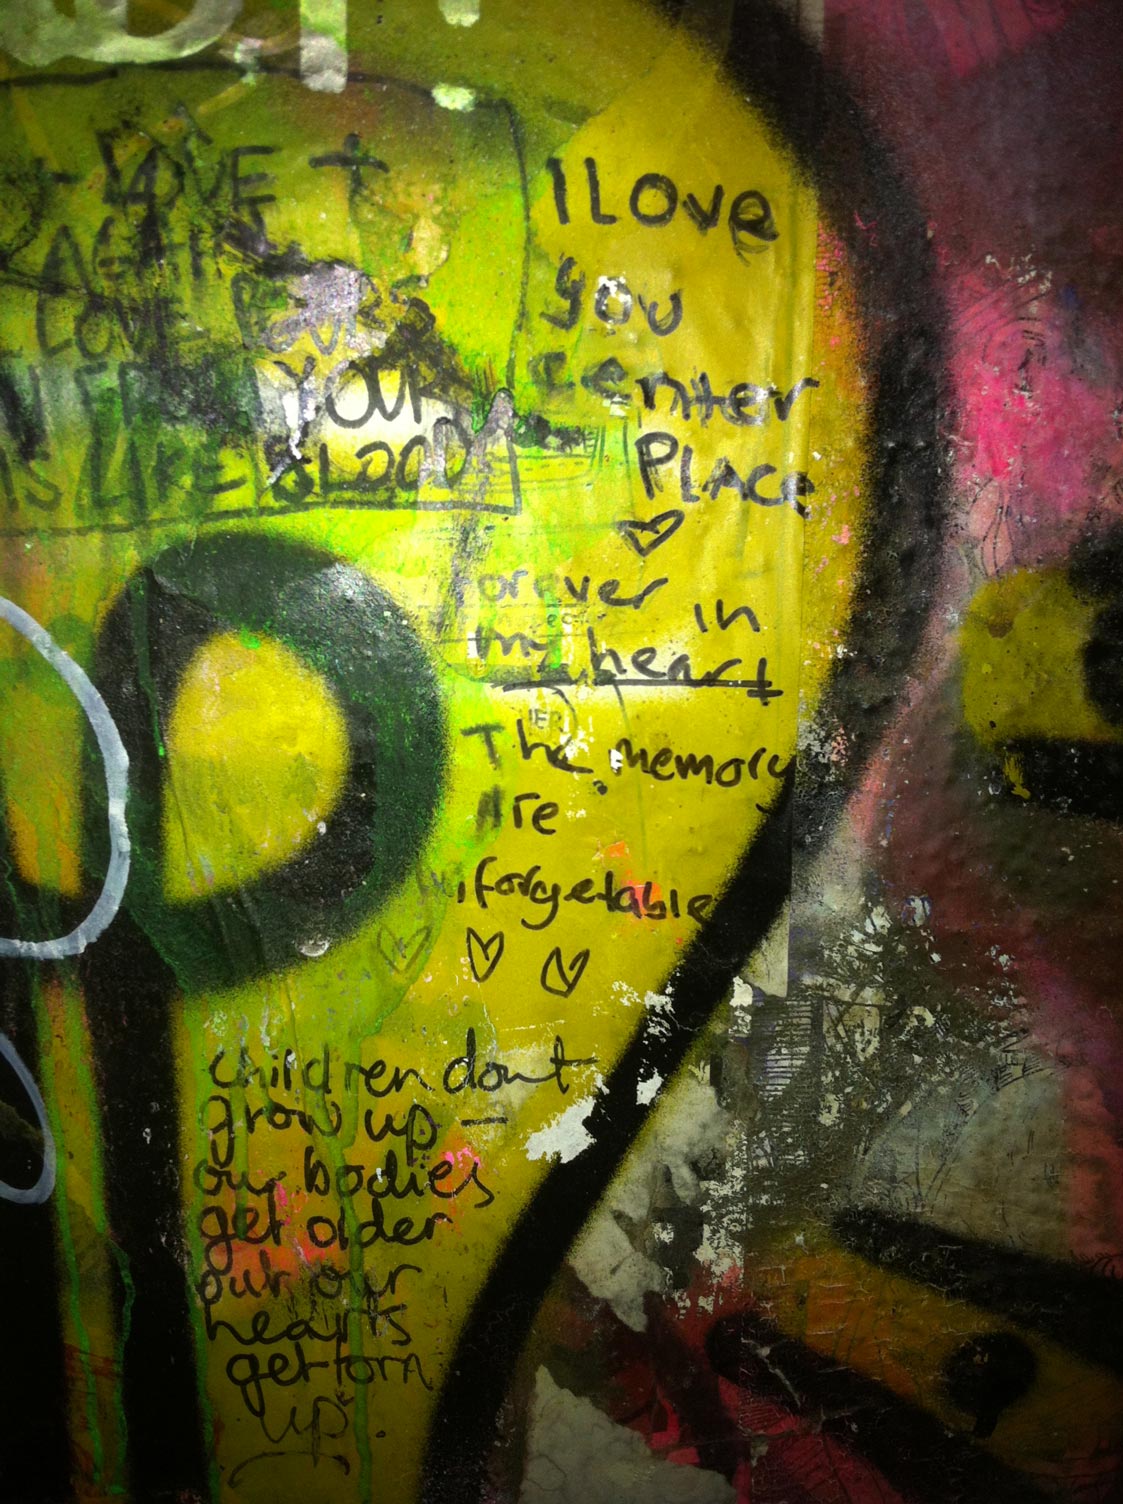 LOVE +
AGAIN
LOVE POURS
YOUR
IS LIKE BLOOD
I LOVE
you
center
PLACE
forever
in
my heart
The memory
Are
forgetable
children dont
grow up —
our bodies
get older
but our
hearts
get torn
up.